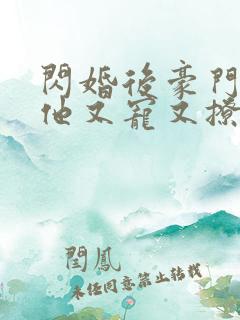 閃婚後豪門
他又寵又撩
閆鳳
未任同意禁止转载